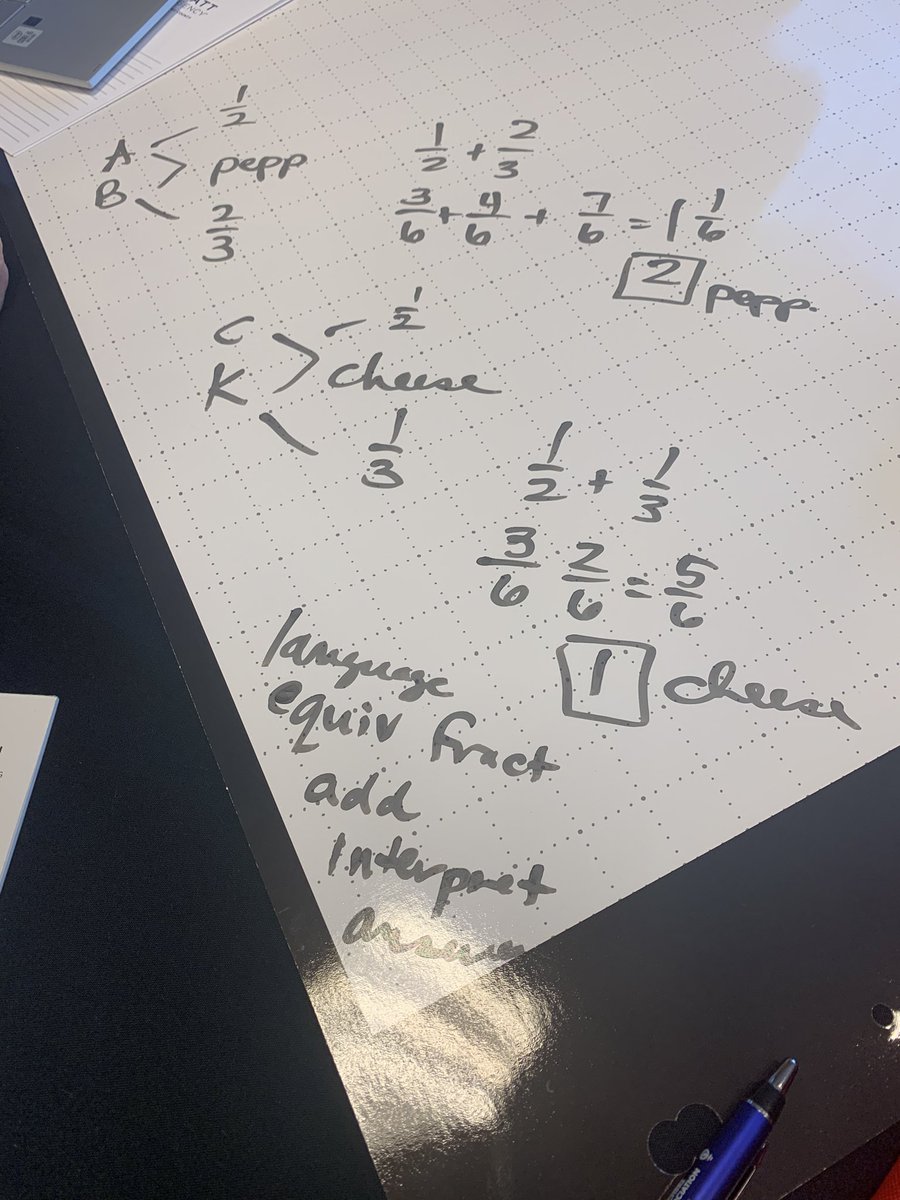 A 1/2
B pepp
2/3
1/2 + 2/3
3/6 + 4/6 + 7/6 = 1 1/6
2 pepp.
C 1/2
K cheese
1/3
1/2 + 1/3
3/6 2/6 = 5/6
1 cheese
language
equiv fract
add
interpret
answer